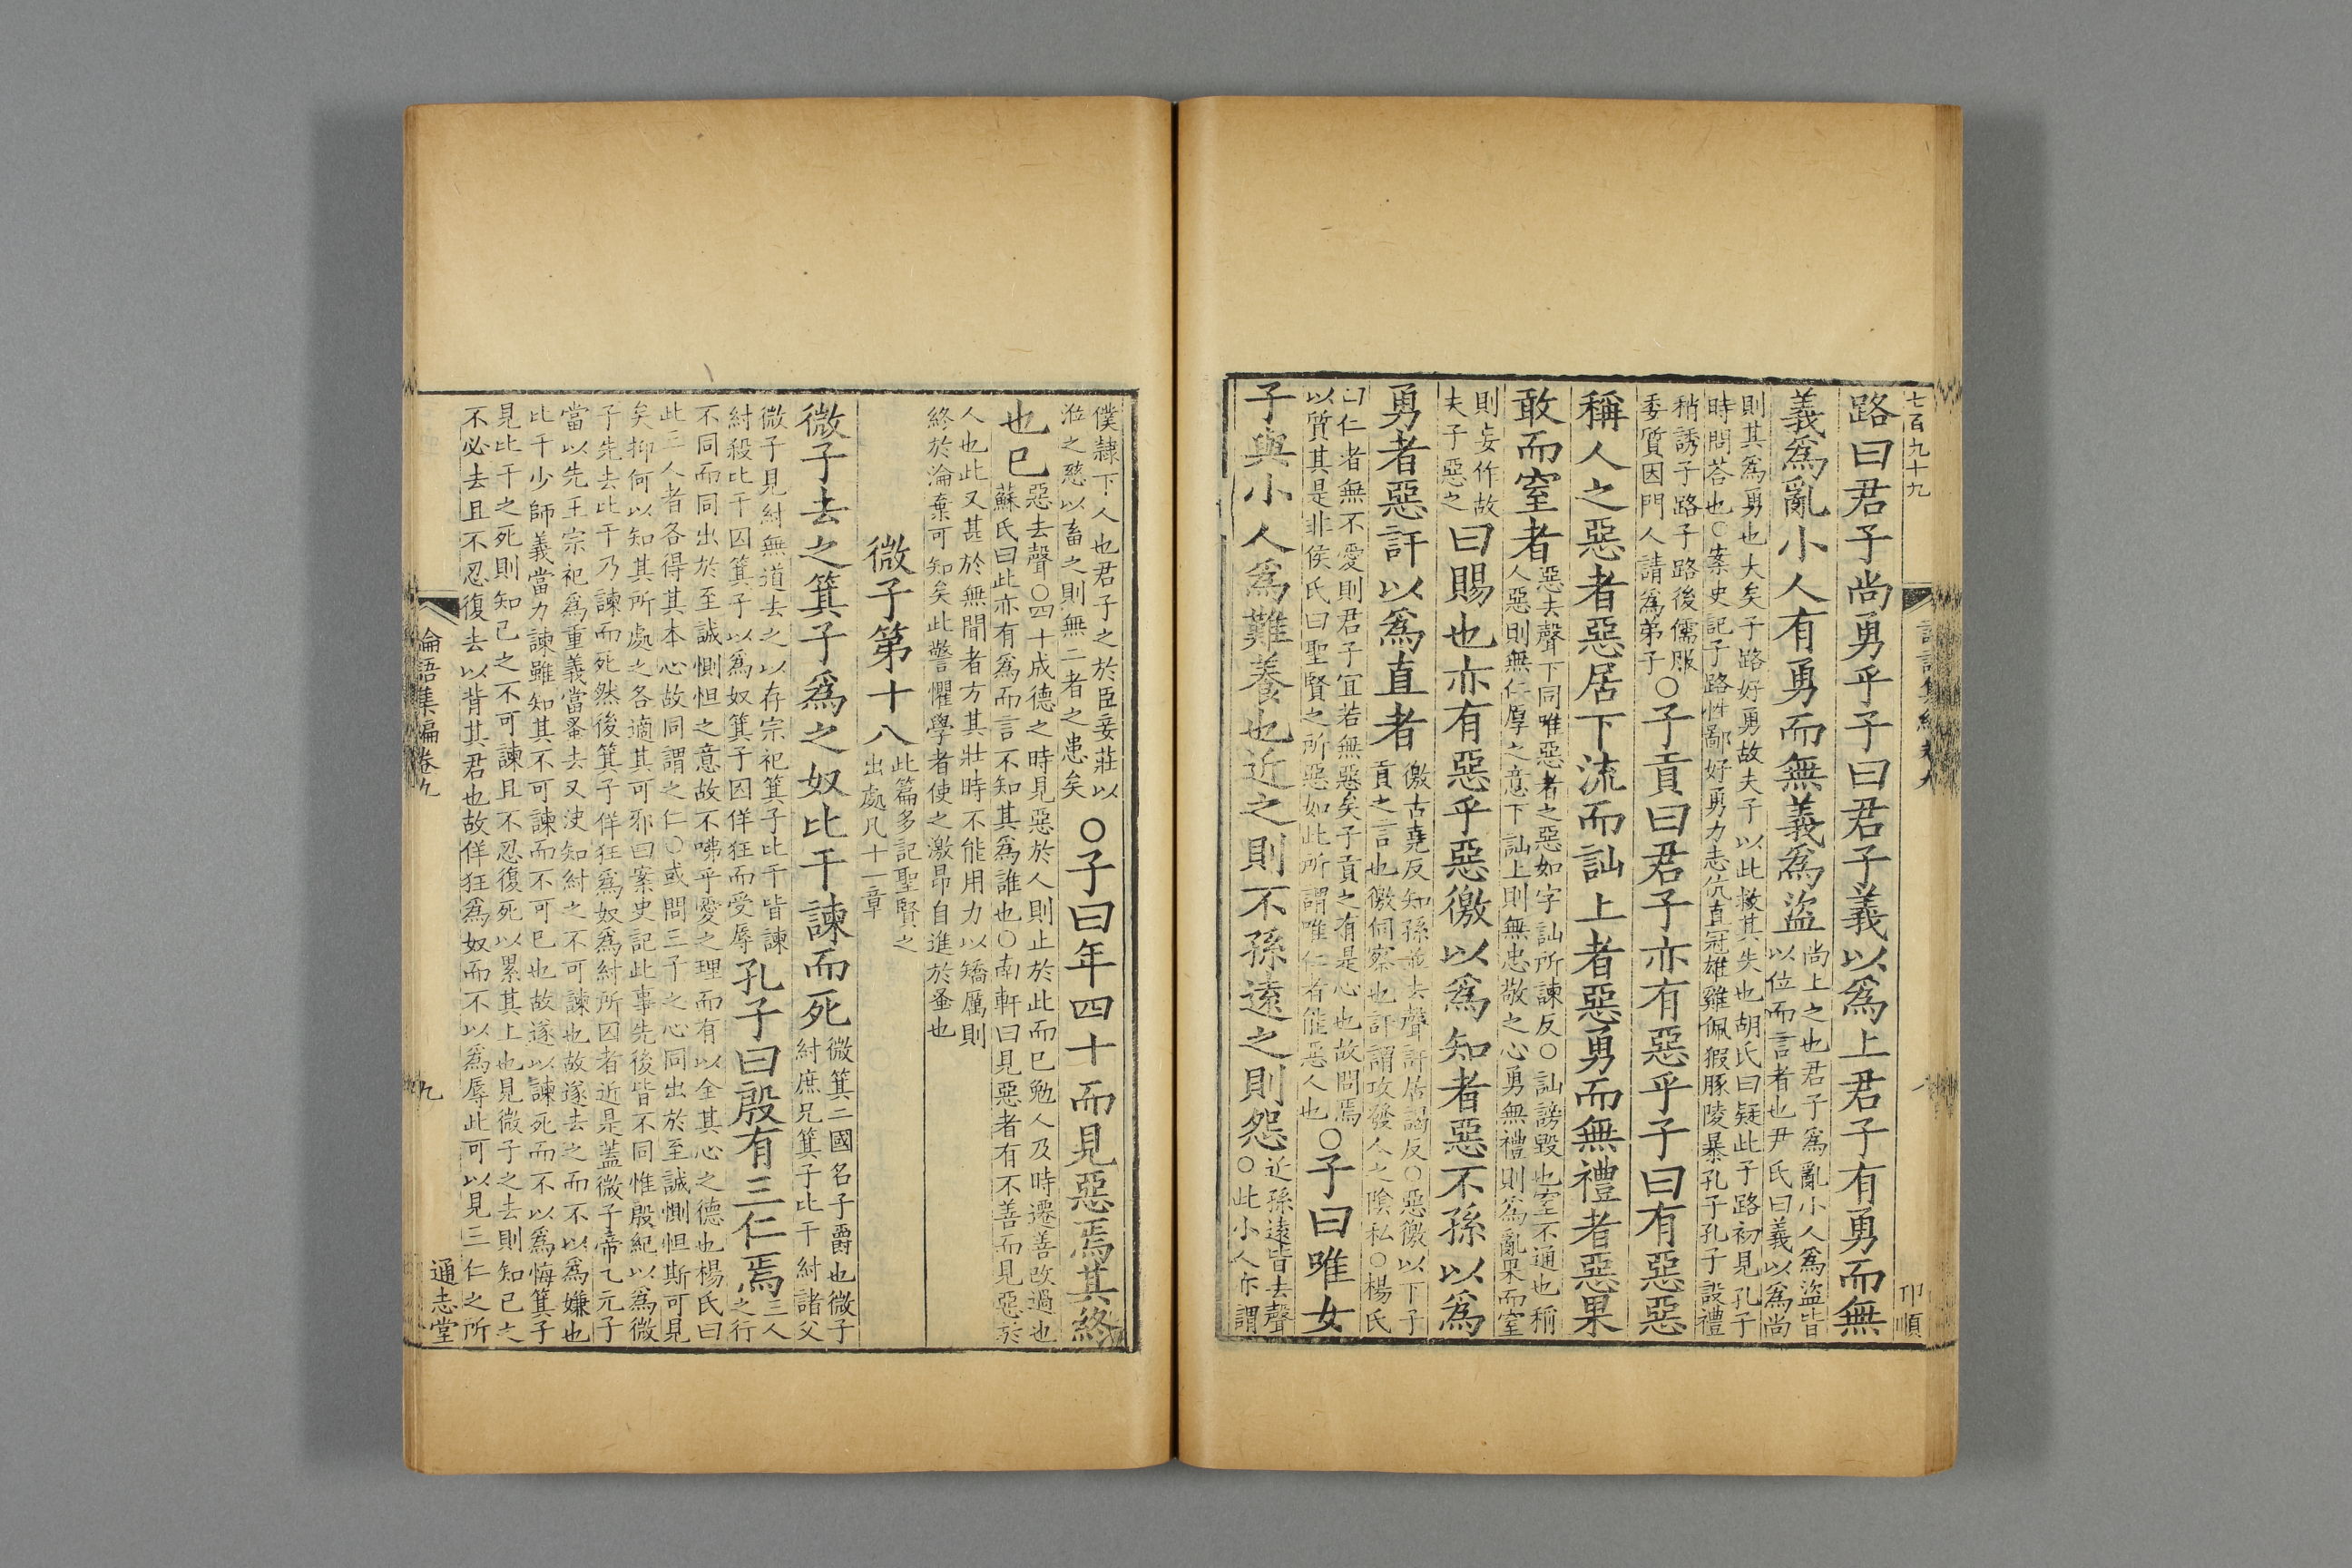 七百九十九
印順
路曰君子尚勇乎子曰君子義以爲上君子有勇而無
義爲亂小人有勇而無義爲盜
尚上之也君子爲亂小人爲盜皆
以位而言者也尹氏曰義以爲尚
則其爲勇也大矣子路好勇故夫子以此救其失也胡氏曰疑此子路初見孔子
時問荅也○案史記子路性鄙好勇力志伉直冠雄雞佩猳豚陵暴孔子孔子設禮
稍誘子路子路後儒服
委質因門人請爲弟子
○子貢曰君子亦有惡乎子曰有惡惡
稱人之惡者惡居下流而訕上者惡勇而無禮者惡果
敢而窒者
惡去聲下同唯惡者之惡如字訕所諫反○訕謗毀也窒不通也稱
人惡則無仁厚之意下訕上則無忠敬之心勇無禮則爲亂果而窒
則妄作故
夫子惡之
曰賜也亦有惡乎惡徼以爲知者惡不孫以爲
勇者惡訐以爲直者
徼古堯反知孫並去聲訐居謁反○惡徼以下子
貢之言也徼伺察也訐謂攻發人之陰私○楊氏
曰仁者無不愛則君子宜若無惡矣子貢之有是心也故問焉
以質其是非侯氏曰聖賢之所惡如此所謂唯仁者能惡人也
○子曰唯女
子與小人爲難養也近之則不孫遠之則怨
近孫遠皆去聲
○此小人亦謂
僕隷下人也君子之於臣妾莊以
涖之慈以畜之則無二者之患矣
○子曰年四十而見惡焉其終
也已
惡去聲○四十成德之時見惡於人則止於此而已勉人及時遷善改過也
蘇氏曰此亦有爲而言不知其爲誰也○南軒曰見惡者有不善而見惡於
人也此又甚於無聞者方其壯時不能用力以矯厲則
終於淪棄可知矣此警懼學者使之激昂自進於蚤也
微子第十八
此篇多記聖賢之
出處凡十一章
微子去之箕子爲之奴比干諫而死
微箕二國名子爵也微子
紂庶兄箕子比干紂諸父
微子見紂無道去之以存宗祀箕子比干皆諫
紂殺比干囚箕子以爲奴箕子因佯狂而受辱
孔子曰殷有三仁焉
三人
之行
不同而同出於至誠惻怛之意故不咈乎愛之理而有以全其心之德也楊氏曰
此三人者各得其本心故同謂之仁○或問三子之心同出於至誠惻怛斯可見
矣抑何以知其所處之各適其可邪曰案史記此事先後皆不同惟殷紀以爲微
子先去比干乃諫而死然後箕子佯狂爲奴爲紂所囚者近是蓋微子帝乙元子
當以先王宗祀爲重義當蚤去又決知紂之不可諫也故遂去之而不以爲嫌也
比干少師義當力諫雖知其不可諫而不可已也故遂以諫死而不以爲悔箕子
見比干之死則知己之不可諫且不忍復死以累其上也見微子之去則知己之
不必去且不忍復去以背其君也故佯狂爲奴而不以爲辱此可以見三仁之所
論語集編卷九
九
通志堂